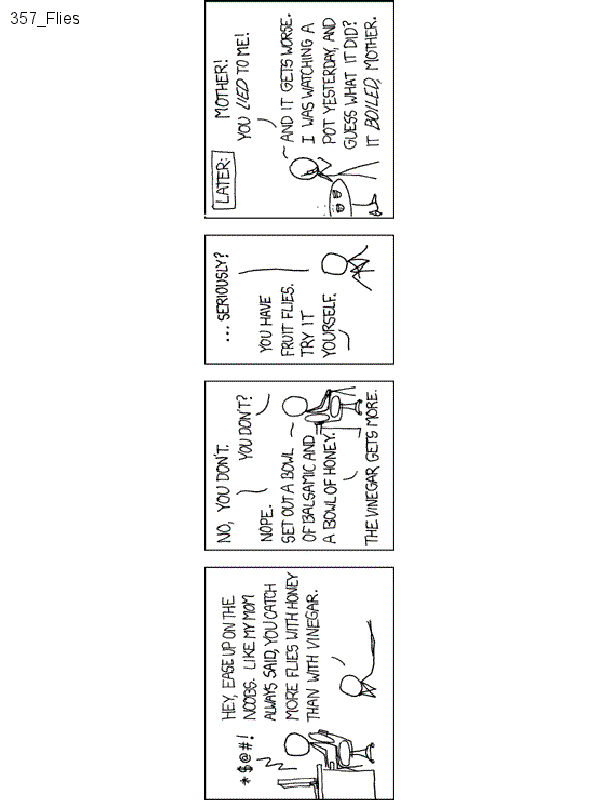 357_Flies
*$@#!
HEY, EASE UP ON THE
NOOBS. LIKE MY MOM
ALWAYS SAID, YOU CATCH
MORE FLIES WITH HONEY
THAN WITH VINEGAR.
NO, YOU DON'T.
YOU DON'T?
NOPE.
SET OUT A BOWL
OF BALSAMIC AND
A BOWL OF HONEY.
THE VINEGAR GETS MORE.
... SERIOUSLY?
YOU HAVE
FRUIT FLIES.
TRY IT
YOURSELF.
LATER:
MOTHER!
YOU LIED TO ME!
AND IT GETS WORSE.
I WAS WATCHING A
POT YESTERDAY, AND
GUESS WHAT IT DID?
IT BOILED, MOTHER.